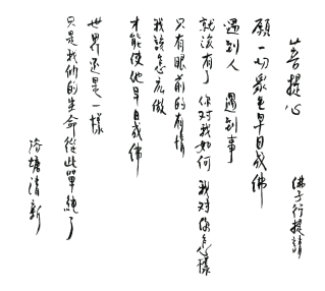 菩提心
佛子行提請
願一切眾生早日成佛
遇到人 遇到事
就沒有了 你對我如何 我對你怎樣
只有眼前的有情
我該怎么做
才能使他早日成佛
世界還是一樣
只是我們的生命從此單純了
清新